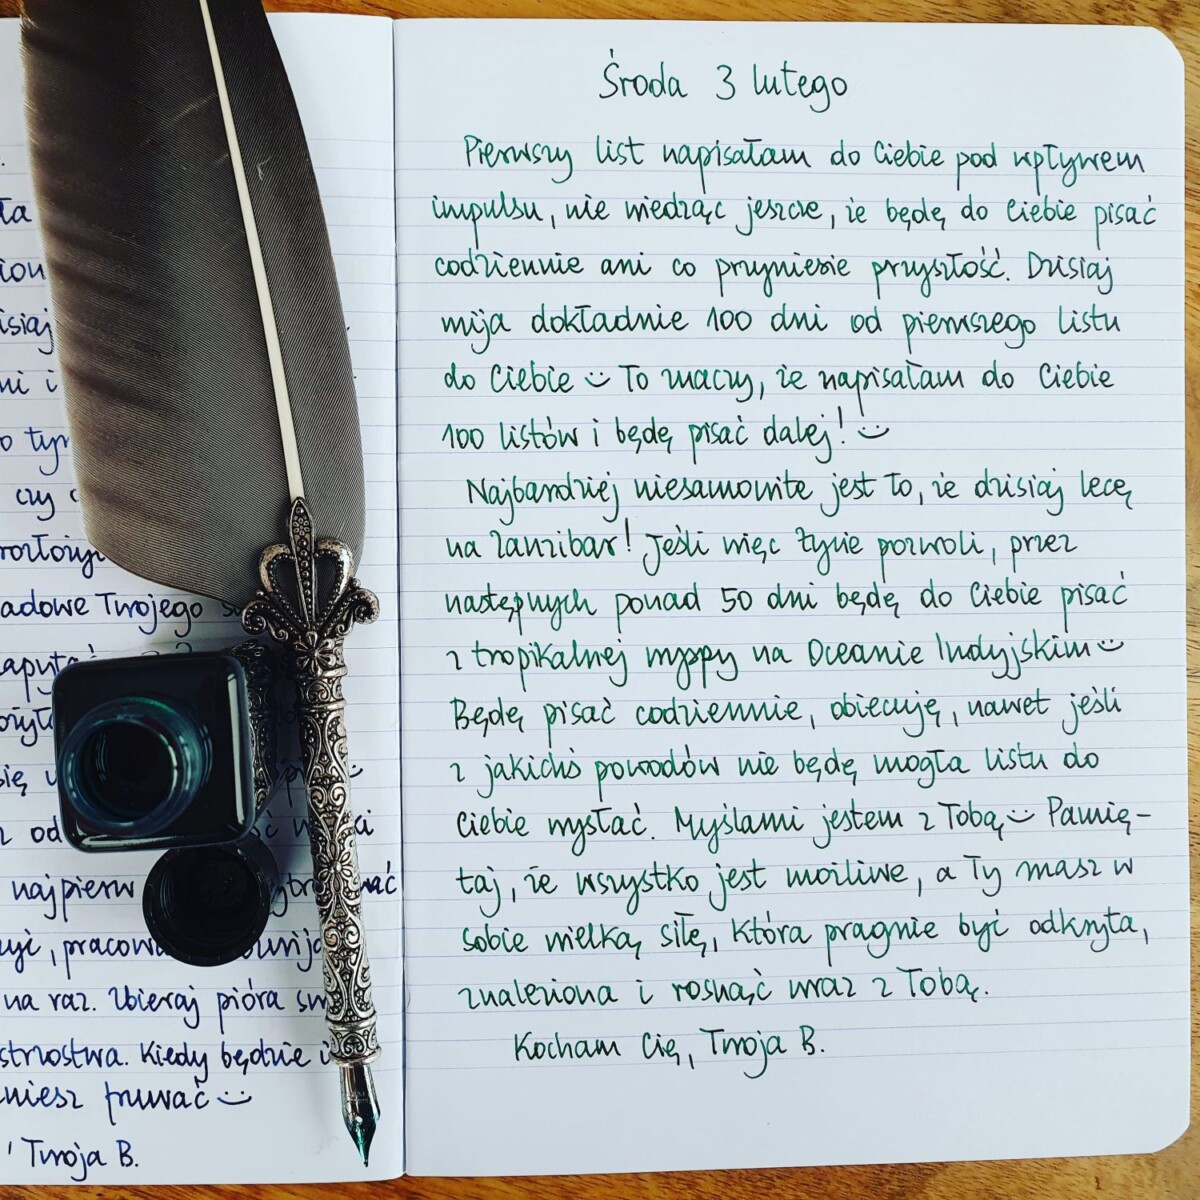 ła
isiaj
ni i
o tym
czy
adowe Twojego
się
z od
najpierw
na raz. Zbieraj pióra
Kiedy będzie
fruwać :)
Twoja B.
Środa 3 lutego
Pierwszy list napisałam do Ciebie pod wpływem
impulsu, nie wiedząc jeszcze, że będę do Ciebie pisać
codziennie ani co przyniesie przyszłość. Dzisiaj
mija dokładnie 100 dni od pierwszego listu
do Ciebie :) To znaczy, że napisałam do Ciebie
100 listów i będę pisać dalej! :)
Najbardziej niesamowite jest to, że dzisiaj lecę
na Zanzibar! Jeśli więc życie pozwoli, przez
następnych ponad 50 dni będę do Ciebie pisać
z tropikalnej wyspy na Oceanie Indyjskim :)
Będę pisać codziennie, obiecuję, nawet jeśli
z jakichś powodów nie będę mogła listu do
Ciebie wysłać. Myślami jestem z Tobą :) Pamię-
taj, że wszystko jest możliwe, a Ty masz w
sobie wielką siłę, która pragnie być odkryta,
znaleziona i rosnąć wraz z Tobą.
Kocham Cię, Twoja B.